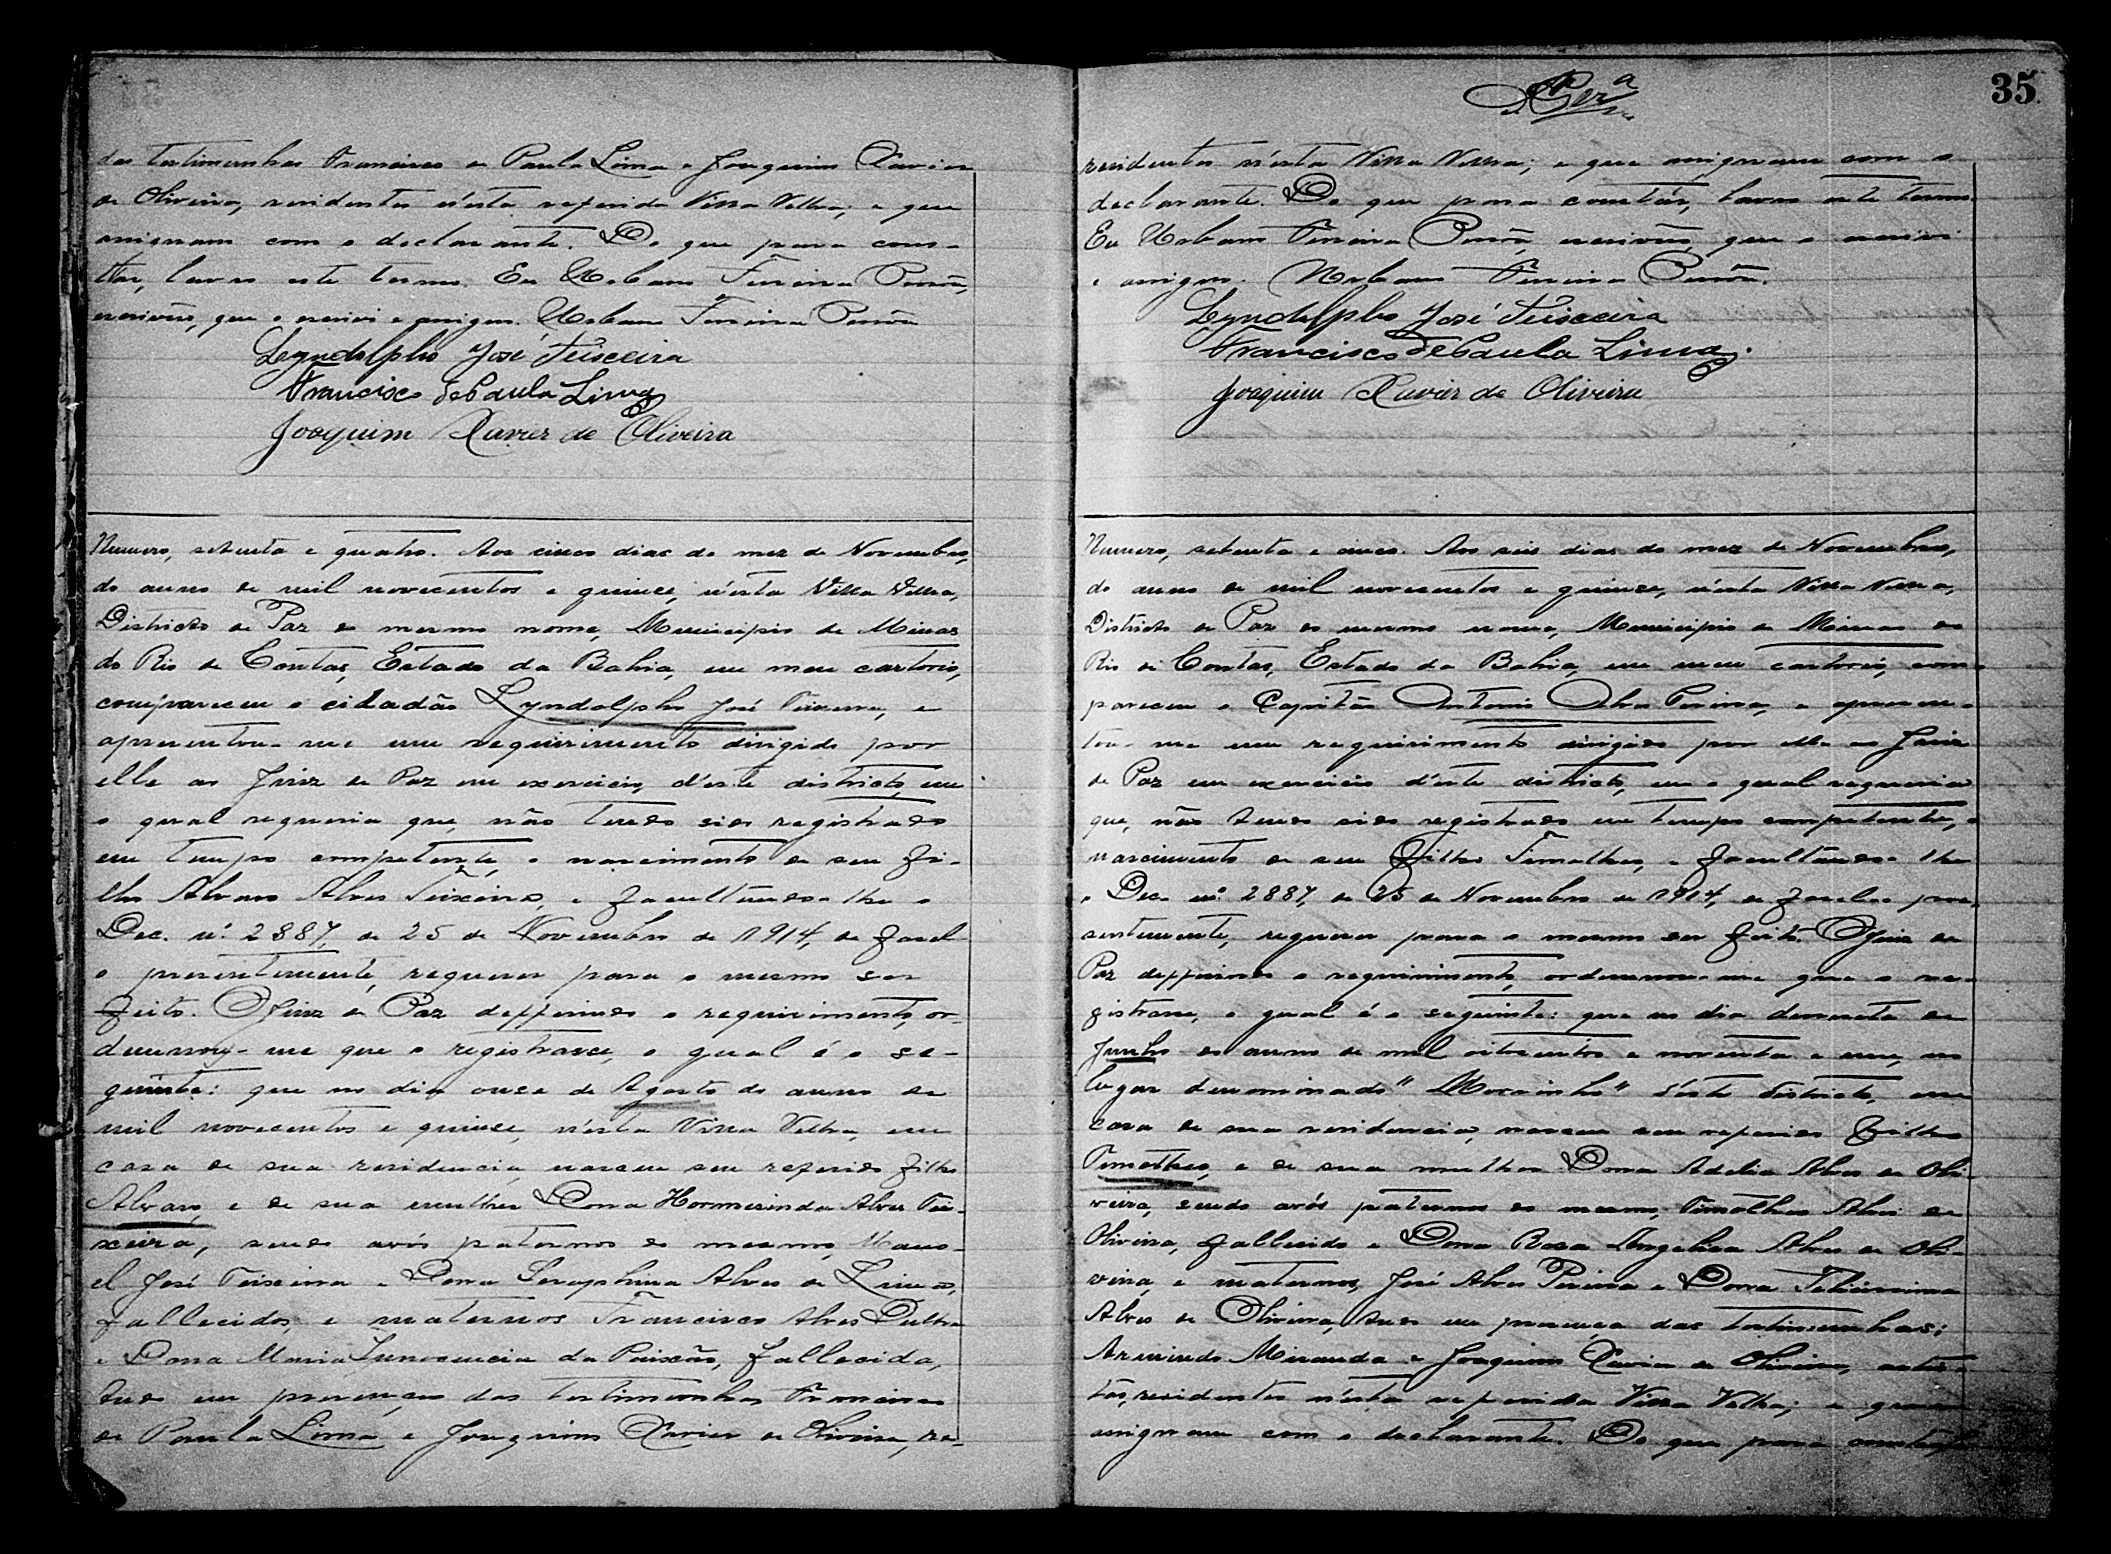 das testimunhas Francisco de Paula Lima e Joaquim Xavier
de Oliveira, residentes n'esta referida Villa Velha; e que
assignam com o declarante. Do que para cons-
tar, lavro este termo. Eu Urbano Ferreira
escrivão, que o escrivi e assigno. Urbano Ferreira
Lyndolpho José Teixceira
Francisco de Paula Lima
Joaquim Xavier de Oliveira
Numero, setenta e quatro. Aos cinco dias do mez de Novembro,
do anno de mil novecentos e quinze, n'esta Villa Velha,
Districto de Paz do mesmo nome, Municipio de Minas
do Rio de Contas, Estado da Bahia, em meu cartorio,
compareceu o cidadão Lyndolpho José Teixeira, e
apresentou-me um requirimento dirigido por
elle ao Juiz de Paz em exercicio, d'este districto, em
o qual requeria que, não tendo sido registrado
em tempo competente, o nascimento de seu fi-
lho Alvaro Alves Teixeira, e facultando-lhe o
Dec. nº 2887, de 25 de Novembro de 1914, de fazel-
o presentemente, requerer para o mesmo ser
feito. O Juiz de Paz defferindo o requirimento, or-
denou-me que o registrasse, o qual é o se-
guinte: que no dia onze de Agosto do anno de
mil novecentos e quinze, n'esta Villa Velha, em
casa de sua residencia, nasceu seu referido filho
Alvaro, e de sua mulher Dona Hormerinda Alves Tei-
xeira, sendo avós paternos do mesmo, Mano-
el José Teixeira e Dona Seraphina Alves de Lima,
fallecidos, e maternos Francisco Alves Dultra
e Dona Maria Innocencia da Paixão, fallecida,
tudo em presença das testimunhas Francisco
de Paula Lima e Joaquim Xavier de Oliveira, re-
35
residentes n'esta Villa Velha; e que assignam com o
declarante. Do que para constár, lavro este termo.
Eu Urbano Ferreira escrivão, que o escrivi
e assigno. Urbano Ferreira
Lyndolpho José Teixceira
Francisco de Paula Lima.
Joaquim Xavier de Oliveira
Numero, setenta e cinco. Aos seis dias do mez de Novembro,
do anno de mil novecentos e quinze, n'esta Villa Velha,
Districto de Paz do mesmo nome, Municipio de Minas do
Rio de Contas, Estado da Bahia, em meu cartorio, com-
pareceu o Capitão Antonio Alves Pereira, e apresen-
tou-me um requirimento dirigido por elle ao Juiz
de Paz em exercicio d'este districto, em o qual requeria
que, não tendo sido registrado em tempo competente, o
nascimento de seu filho Timotheo, e facultando-lhe
o Dec. nº 2887, de 25 de Novembro de 1914, de fazel-o pre-
sentemente, requerer para o mesmo ser feito. O Juiz de
Paz defferindo o requirimento, ordenou-me que o re-
gistrasse, o qual é o seguinte: que no dia dezesete de
Junho do anno de mil oitocentos e noventa e um, no
lugar denominado "Mocainho" d'este districto, em
casa de sua residencia, nasceu seu referido filho
Timotheo, e de sua mulher Dona Adelia Alves de Oli-
veira, sendo avós paternos do mesmo, Timotheo Alves de
Oliveira, fallecido e Dona Rosa Angelica Alves de Oli-
veira, e maternos, José Alves Pereira e Dona Felicissima
Alves de Oliveira, tudo em presença das testimunhas;
Armindo Miranda e Joaquim Xavier de Oliveira,
residentes n'esta referida Villa Velha; e que
assignam com o declarante. Do que para constar,